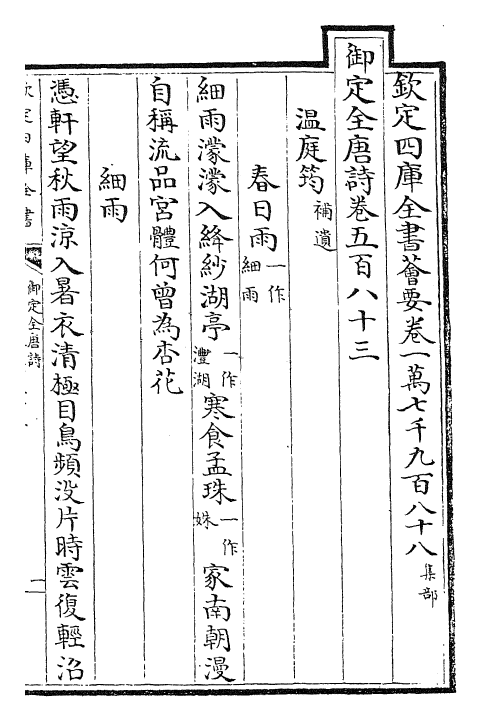 欽定四庫全書薈要卷一萬七千九百八十八 集部
御定全唐詩卷五百八十三
溫庭筠 補遺
春日雨 一作細雨
細雨濛濛入絳紗湖亭 一作灃湖 寒食孟珠 一作姝 家南朝漫
自稱流品宮體何曾為杏花
細雨
憑軒望秋雨涼入暑衣清極目鳥頻没片時雲復輕沼
欽定四庫全書 御定全唐詩